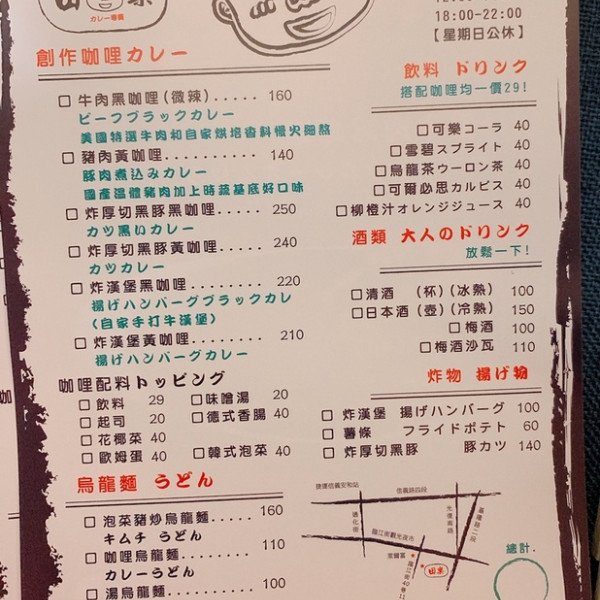 カレー專賣
18:00-22:00
【星期日公休】
創作咖哩カレー
牛肉黑咖哩(微辣)..... 160
ビーフブラックカレー
美國特選牛肉和自家烘培香料慢火細熬
豬肉黃咖哩.......... 140
豚肉煮込みカレー
國產溫體豬肉加上時蔬基底好口味
炸厚切黑豚黑咖哩..... 250
カツ黒いカレー
炸厚切黑豚黃咖哩..... 240
カツカレー
炸漢堡黑咖哩........ 220
揚げハンバーグブラックカレ
(自家手打牛漢堡)
炸漢堡黃咖哩........ 210
揚げハンバーグカレー
咖哩配料トッピング
飲料 29 味噌湯 20
起司 20 德式香腸 40
花椰菜 40
歐姆蛋 40 韓式泡菜 40
烏龍麵 うどん
泡菜豬炒烏龍麵..... 160
キムチ うどん
咖哩烏龍麵........ 110
カレーうどん
湯烏龍麵......... 100
飲料 ドリンク
搭配咖哩均一價29!
可樂コーラ 40
雪碧スプライト 40
烏龍茶ウーロン茶 40
可爾必思カルピス 40
柳橙汁オレンジジュース 40
酒類 大人のドリンク
放鬆一下!
清酒 (杯)(冰熱) 100
日本酒(壺)(冷熱) 150
梅酒 100
梅酒沙瓦 110
炸物 揚げ物
炸漢堡 揚げハンバーグ 100
薯條 フライドポテト 60
炸厚切黑豚 豚カツ 140
捷運信義安和站
信義路四段
通化街
光復南路
基隆路二段
臨江街觀光夜市
臨江街40巷口
總計.